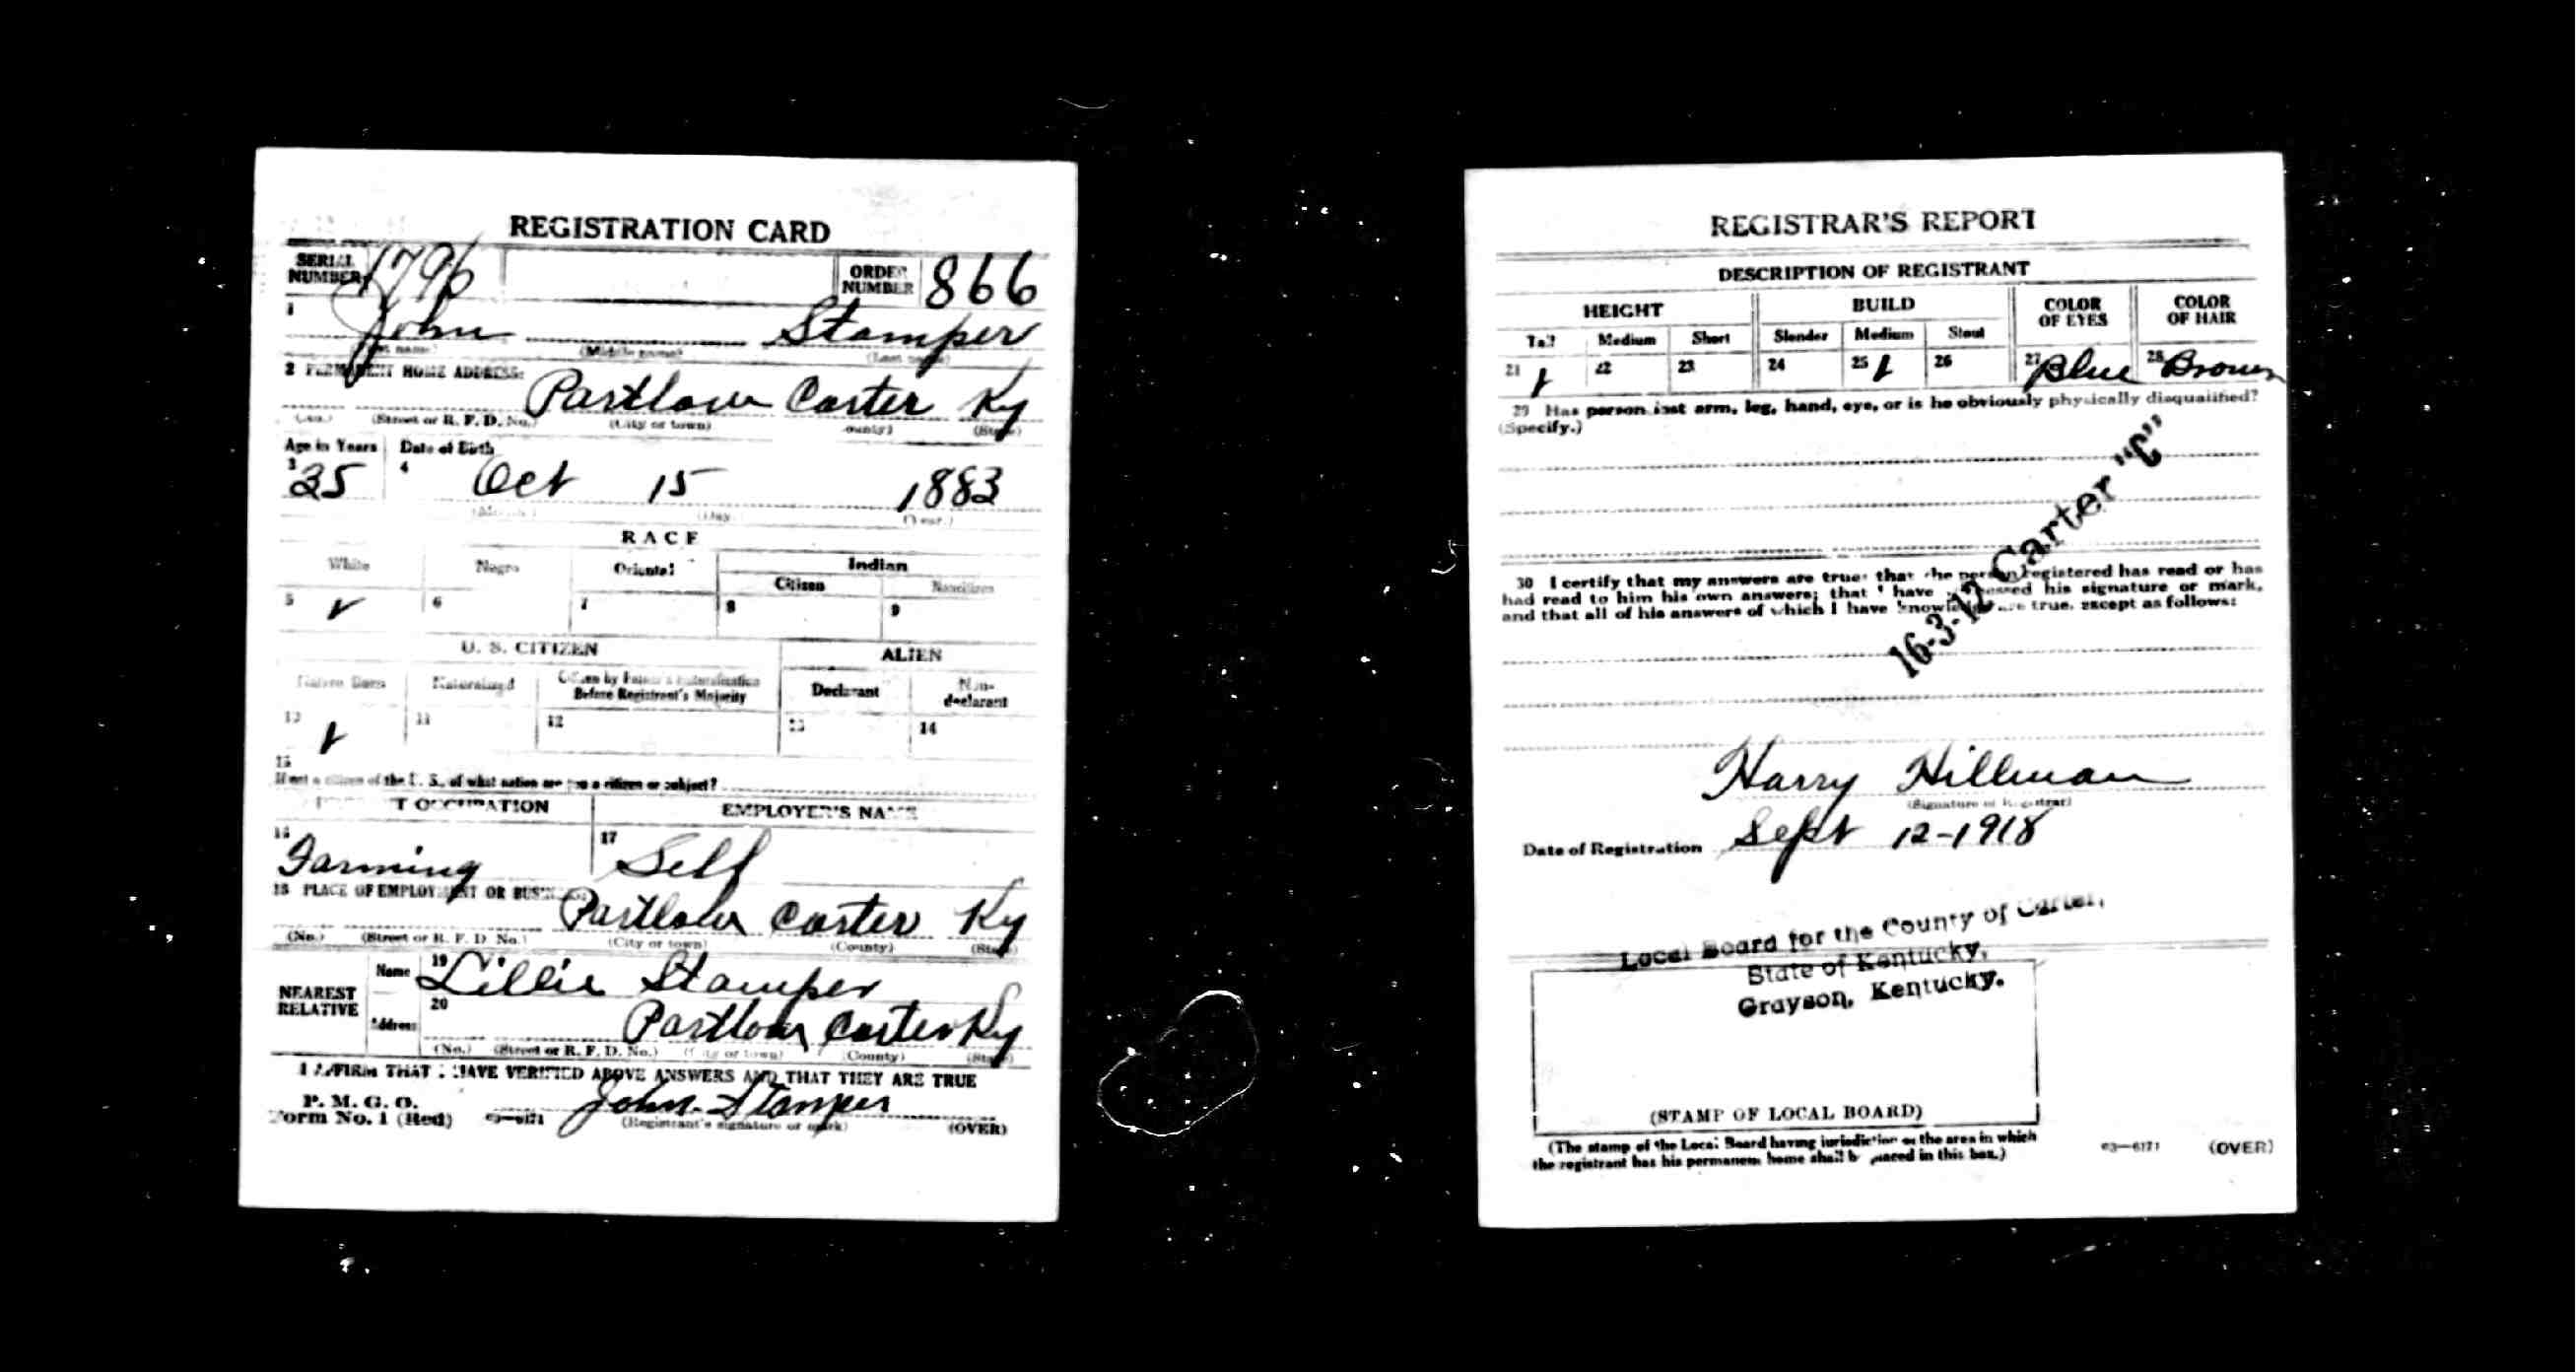 REGISTRATION CARD
SERIAL NUMBER 1796 ORDER NUMBER 866
1 John Stamper
(Middle name) (Last name)
2 PERMANENT HOME ADDRESS: Partlow Carter Ky
(No.) (Street or R. F. D. No.) (City or town) (County) (State)
Age in Years Date of Birth
3 35 4 Oct 15 1883
(Month.) (Day.) (Year.)
RACE
White Negro Oriental Indian
Citizen Noncitizen
5 6 7 8 9
U. S. CITIZEN ALIEN
Native Born Naturalized Citizen by Father's Naturalization Before Registrant's Majority Declarant Non-declarant
10 11 12 13 14
15
If not a citizen of the U. S., of what nation are you a citizen or subject?
PRESENT OCCUPATION EMPLOYER'S NAME
16 Farming 17 Self
18 PLACE OF EMPLOYMENT OR BUSINESS: Partlow Carter Ky
(No.) (Street or R. F. D. No.) (City or town) (County) (State)
NEAREST RELATIVE Name 19 Lillie Stamper
Address 20 Partlow Carter Ky
(No.) (Street or R. F. D. No.) (City or town) (County) (State)
I AFFIRM THAT I HAVE VERIFIED ABOVE ANSWERS AND THAT THEY ARE TRUE
P. M. G. O.
Form No. 1 (Red) 03—6171 John Stamper
(Registrant's signature or mark) (OVER)
REGISTRAR'S REPORT
DESCRIPTION OF REGISTRANT
HEIGHT BUILD COLOR OF EYES COLOR OF HAIR
Tall Medium Short Slender Medium Stout
21 22 23 24 25 26 27 Blue 28 Brown
29 Has person lost arm, leg, hand, eye, or is he obviously physically disqualified?
(Specify.)
16-3-12 Carter "C"
30 I certify that my answers are true; that the person registered has read or has
had read to him his own answers; that I have witnessed his signature or mark,
and that all of his answers of which I have knowledge are true, except as follows:
Harry Hillman
(Signature of Registrar)
Date of Registration Sept 12-1918
Local Board for the County of Carter,
State of Kentucky,
Grayson, Kentucky.
(STAMP OF LOCAL BOARD)
(The stamp of the Local Board having jurisdiction of the area in which
the registrant has his permanent home shall be placed in this box.)
03—6171 (OVER)